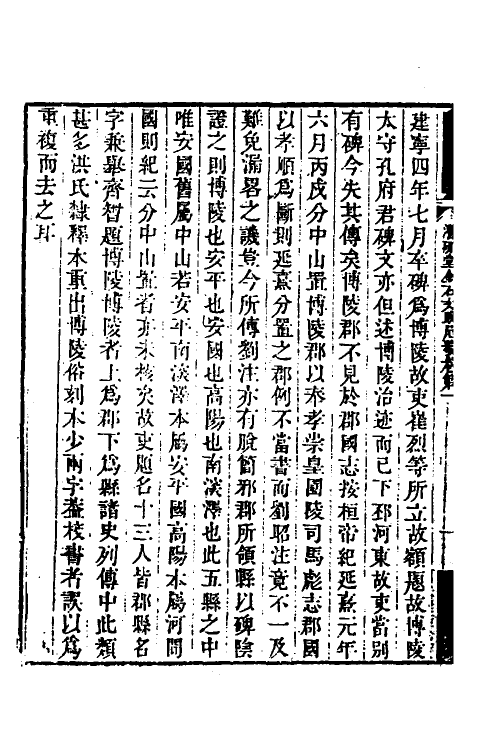 建寧四年七月卒碑爲博陵故吏崔烈等所立故額題故博陵
太守孔府君碑文亦但述博陵治迹而已下邳河東故吏當別
有碑今失其傳矣博陵郡不見於郡國志按桓帝紀延熹元年
六月丙戌分中山置博陵郡以奉孝崇皇園陵司馬彪志郡國
以孝順爲斷則延熹分置之郡例不當書而劉昭注竟不一及
難免漏畧之譏豈今所傳劉注亦有脫簡邪郡所領縣以碑陰
證之則博陵也安平也安國也高陽也南深澤也此五縣之中
唯安國舊屬中山若安平南深澤本屬安平國高陽本屬河間
國則紀云分中山置者亦未核矣故吏題名十三人皆郡縣名
字兼舉齊智題博陵博陵者上爲郡下爲縣諸史列傳中此類
甚多洪氏隸釋本重出博陵俗刻本少兩字葢校書者誤以爲
重複而去之耳